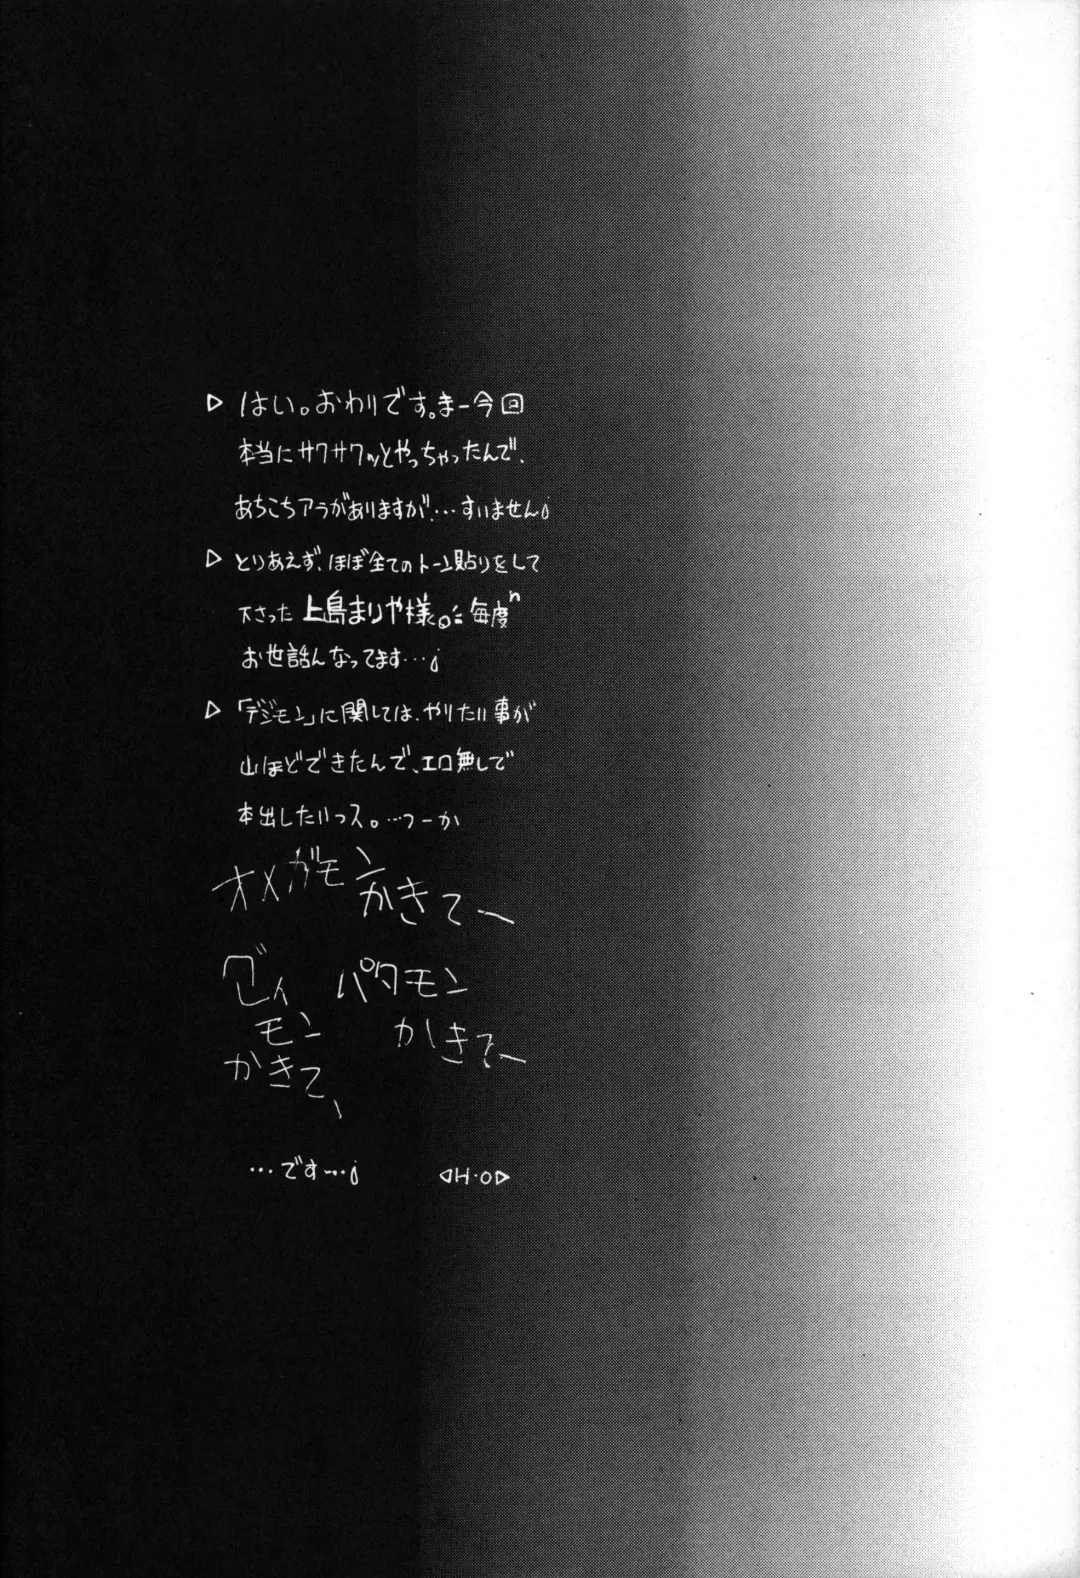 ▷ はい。おわりです。まー今回
本当にサクサクッとやっちゃったんで、
あちこちアラがありますが、…すいませんj
▷ とりあえず、ほぼ全てのトーン貼りをして
下さった 上島まりや様。 毎度n
お世話んなってます…j
▷ 「デジモン」に関しては、やりたい事が
山ほどできたんで、エロ無しで
本出したいっス。…つーか
オメガモン
かきてー
ブイ パタモン
モン かきてー
かきて、
…です…j ◁H・O▷